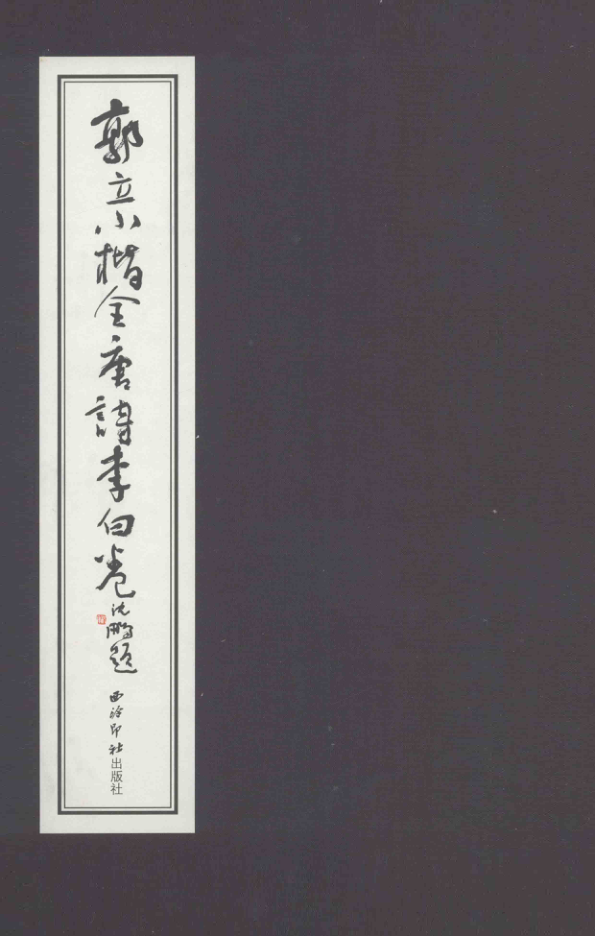 郭立小楷全唐詩李白卷
沈鵬題
西泠印社出版社